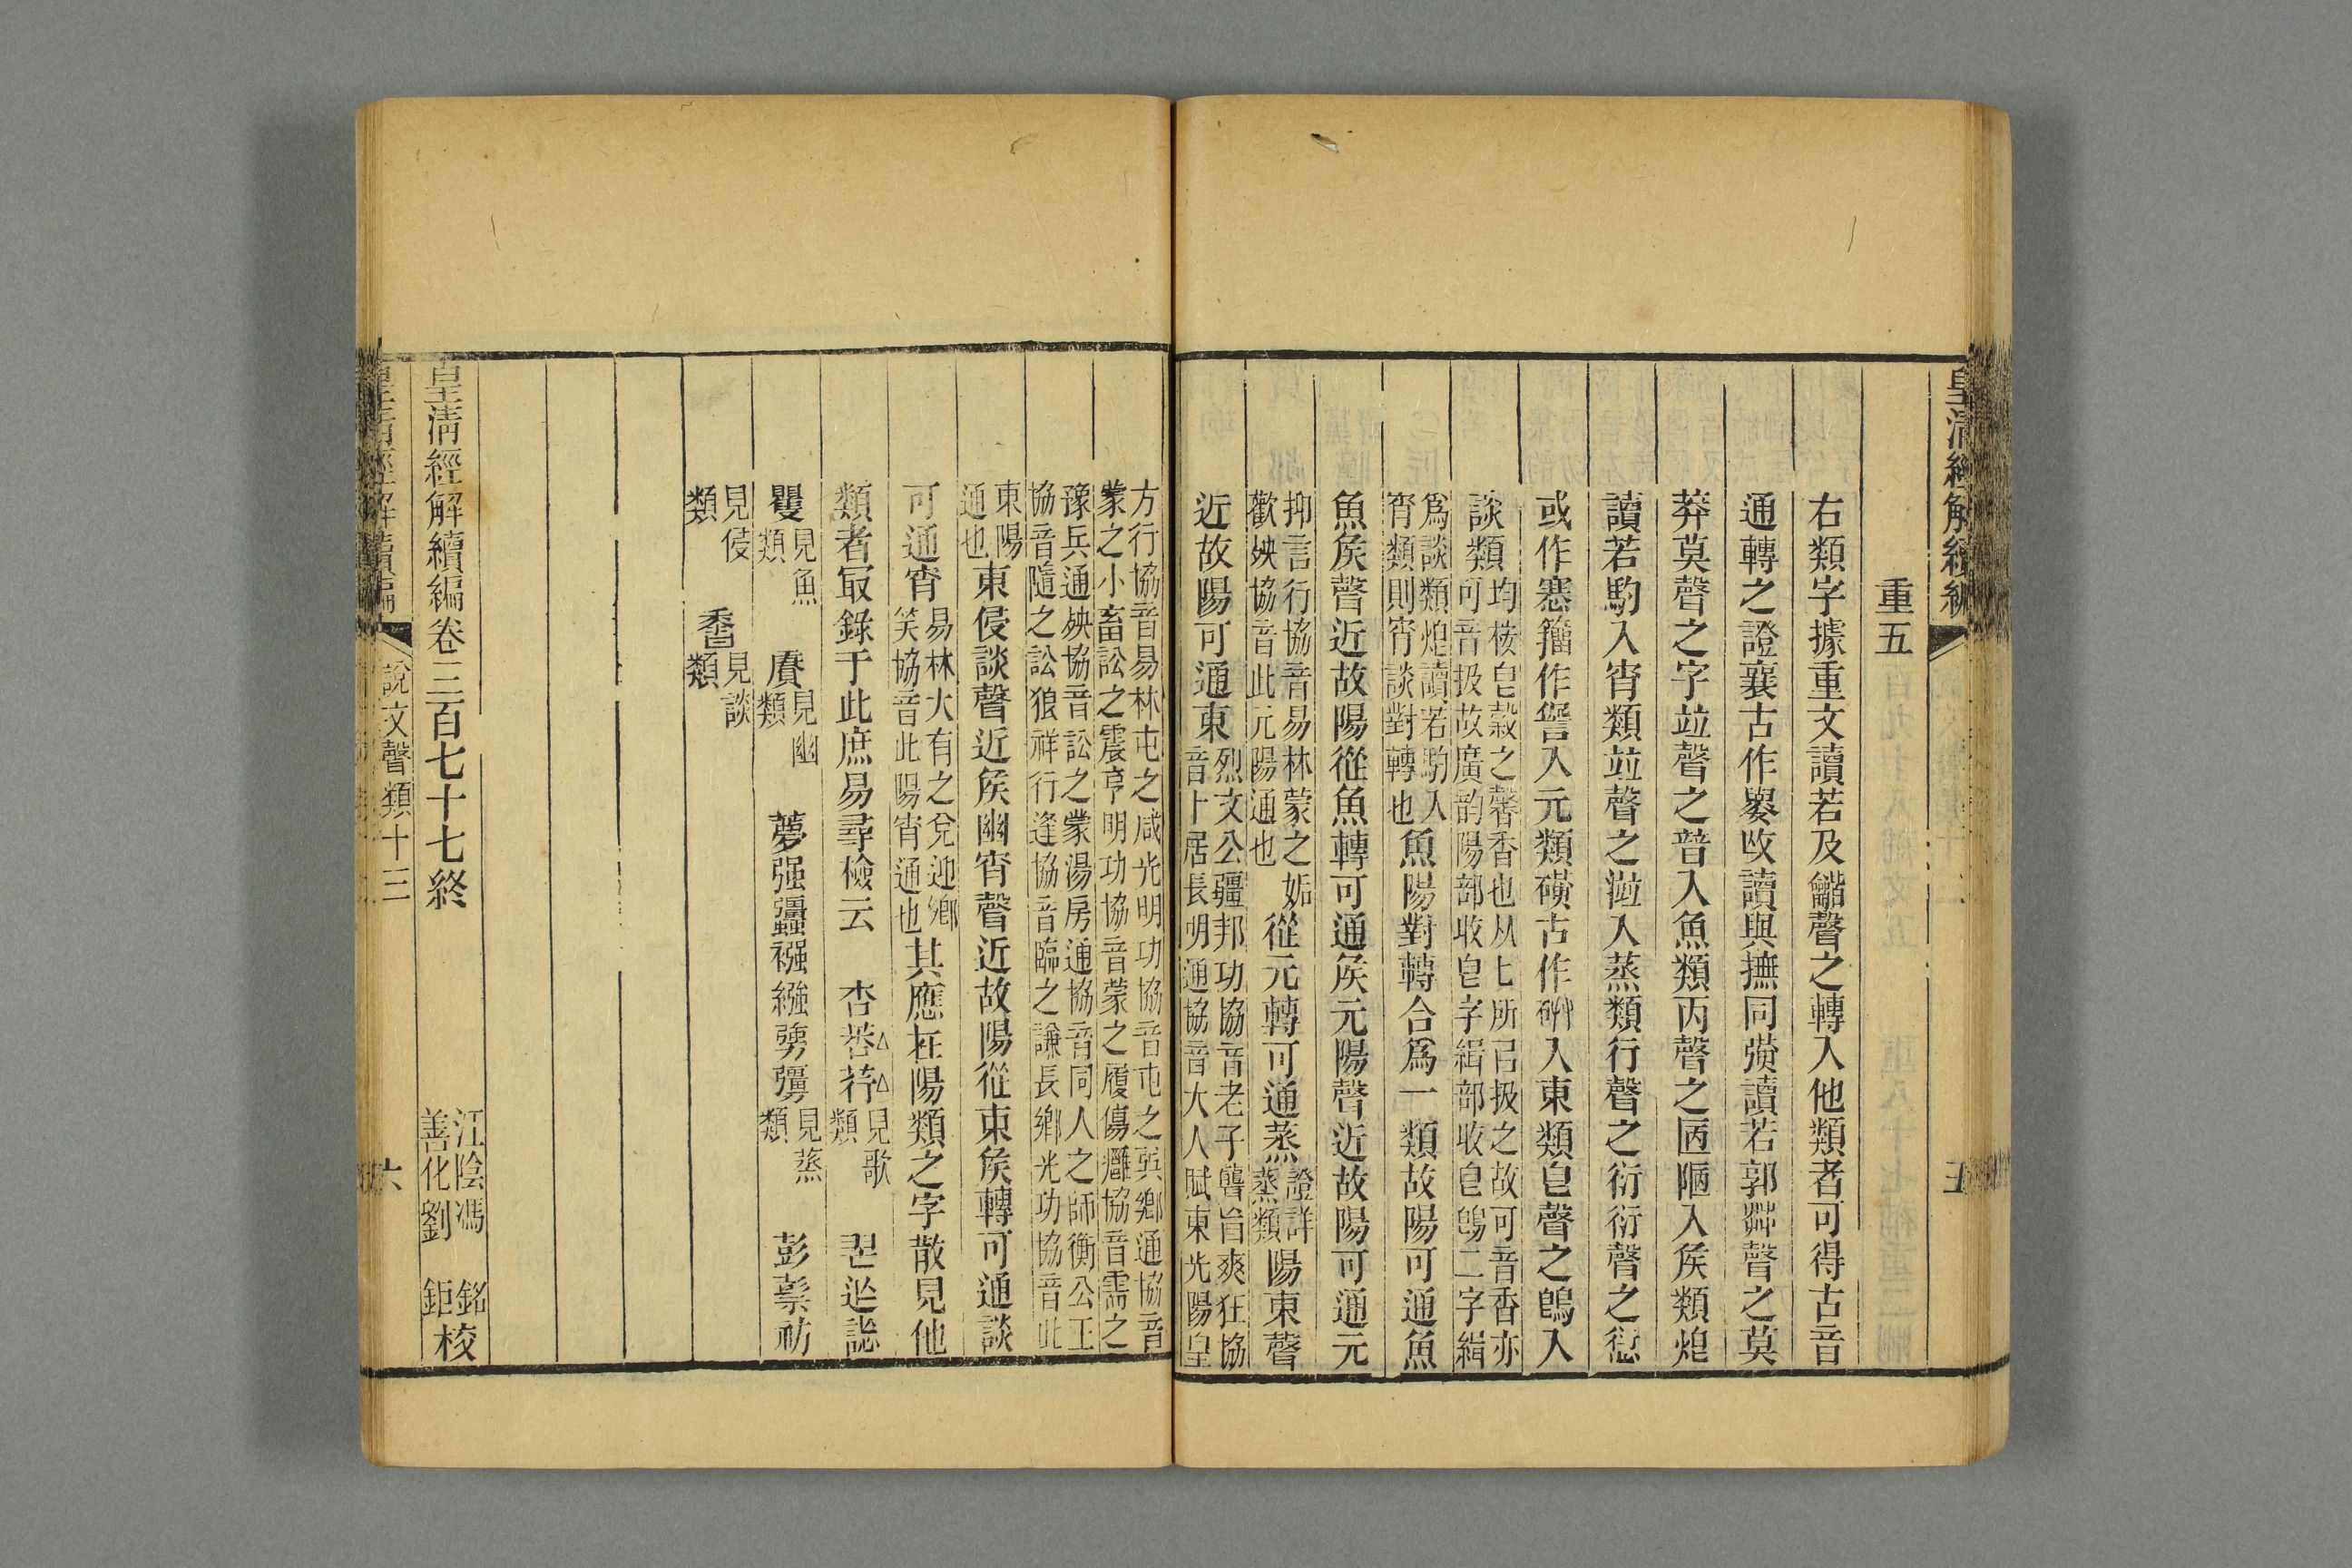 皇清經解續編
重五
右類字據重文讀若及龤聲之轉入他類者可得古音
通轉之證襄古作㚁攺讀與撫同彉讀若郭茻聲之莫
莽莫聲之字竝聲之普入魚類丙聲之㔷陋入矦類炟
讀若駒入宵類竝聲之𣶇入蒸類行聲之衍衍聲之愆
或作𠎝籓作諐入元類磺古作卝入東類皀聲之鵖入
談類均桉皀穀之馨香也从匕所㠯扱之故可音香亦
可音扱故廣韵陽部收皀字緝部收皀鵖二字緝
爲談類炟讀若駒入
宵類則宵談對轉也魚陽對轉合爲一類故陽可通魚
魚矦聲近故陽從魚轉可通矦元陽聲近故陽可通元
抑言行協音易林蒙之姤
歡殃協音此元陽通也從元轉可通蒸證詳
蒸類陽東聲
近故陽可通東烈文公疆邦功協音老子聾旨爽狂協
音卜居長明通協音大人賦東光陽皇
方行協音易林屯之咸光明功協音屯之巽鄉通協音
蒙之小畜訟之震亨明功協音蒙之履傷癰協音需之
豫兵通殃協音訟之蒙湯房通協音同人之師衡公王
協音隨之訟狼祥行逢協音臨之謙長鄉光功協音此
東陽
通也東侵談聲近矦幽宵聲近故陽從東矦轉可通談
可通宵易林大有之兌迎鄉
笑協音此陽宵通也其應在陽類之字散見他
類者冣錄于此庶易尋檢云 杏莕荇見歌
類 𦣞𨒌誩
矍見魚
類 賡見幽
類 夢强彊䖑襁繦勥彊見蒸
類 彭㯱祊
見侵
類 䭫見談
類
皇清經解續編卷三百七十七終
江陰馮 銘
善化劉 鉅校
皇清經解續編 說文聲類十三 六